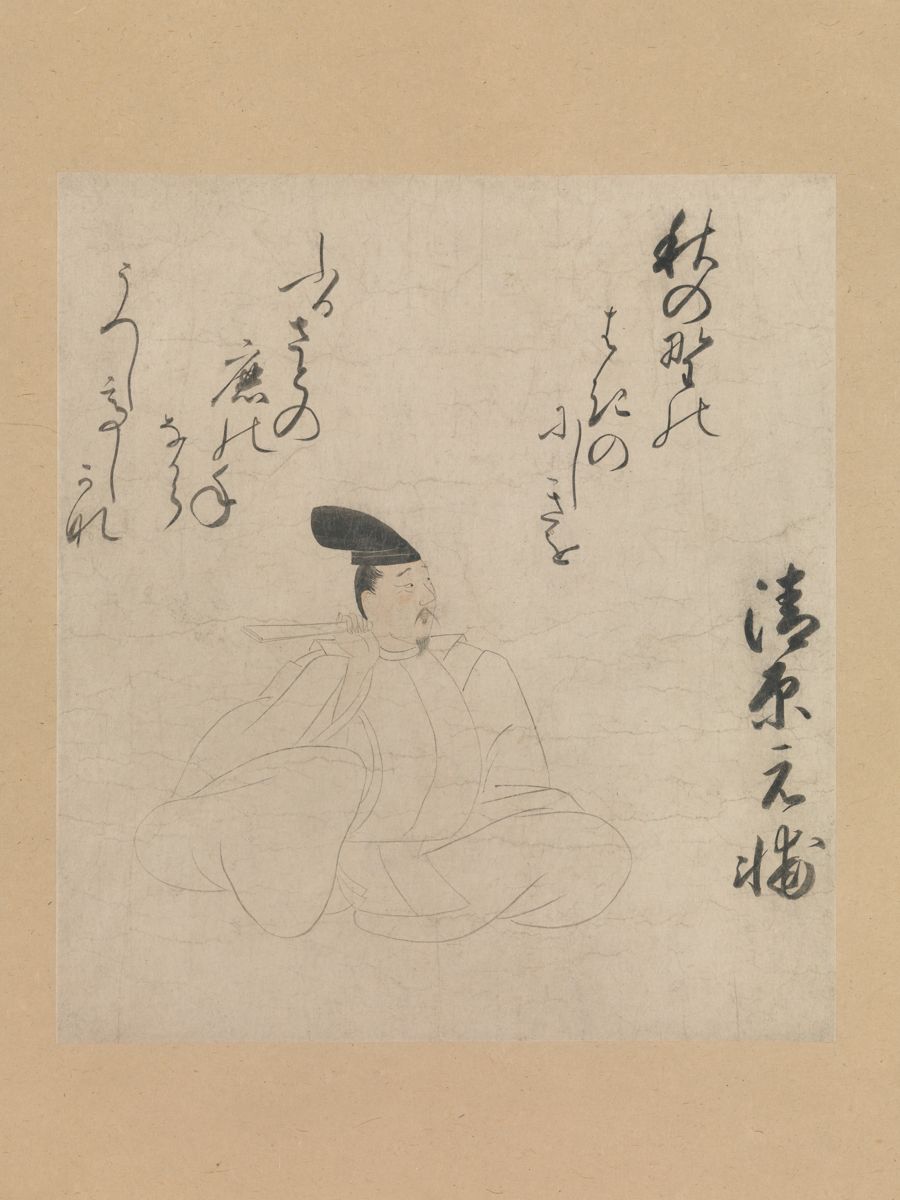 清原元輔
秋の野の
はきの
にしきを
ふるさとの
鹿のね
なから
うつしてしかな